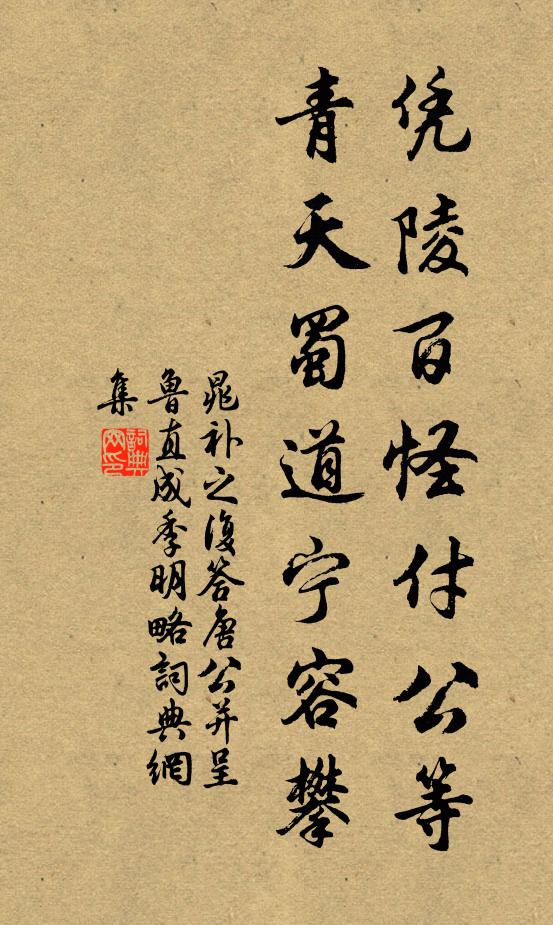 凭陵百怪付公等
青天蜀道宁容攀
晁补之復答唐公并呈
魯直成季明略詞典網
集
詞典網印